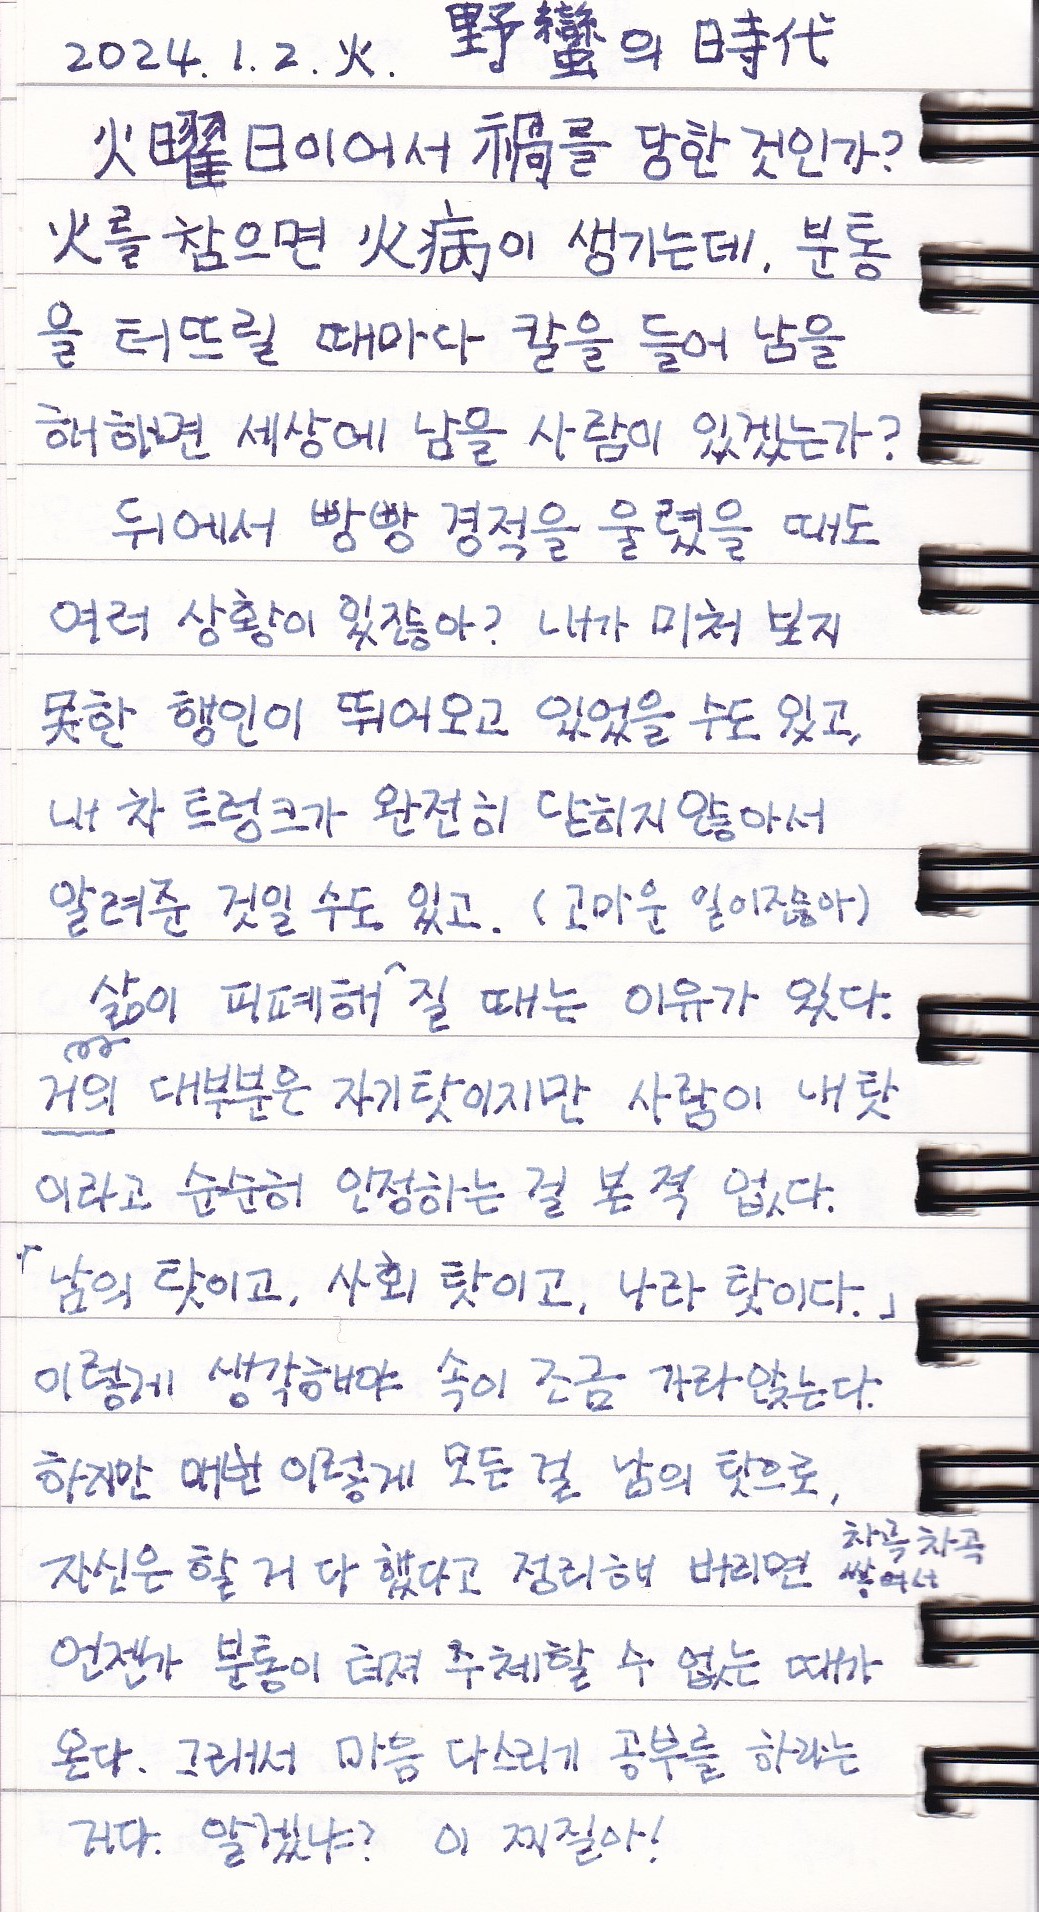 2024. 1. 2. 火. 野蠻의 時代
火曜日이어서 禍를 당한 것인가?
火를 참으면 火病이 생기는데, 분통
을 터뜨릴 때마다 칼을 들어 남을
해하면 세상에 남을 사람이 있겠는가?
뒤에서 빵빵 경적을 울렸을 때도
여러 상황이 있잖아? 내가 미처 보지
못한 행인이 뛰어오고 있었을 수도 있고,
내 차 트렁크가 완전히 닫히지 않아서
알려준 것일 수도 있고. (고마운 일이잖아)
삶이 피폐해^질 때는 이유가 있다.
거의 대부분은 자기탓이지만 사람이 내 탓
이라고 순순히 인정하는 걸 본 적 없다.
「남의 탓이고, 사회 탓이고, 나라 탓이다.」
이렇게 생각해야 속이 조금 가라앉는다.
하지만 매번 이렇게 모든 걸 남의 탓으로,
자신은 할 거 다 했다고 정리해 버리면 차곡차곡
쌓여서
언젠가 분통이 터져 주체할 수 없는 때가
온다. 그래서 마음 다스리기 공부를 하라는
거다. 알겠냐? 이 찌질아!